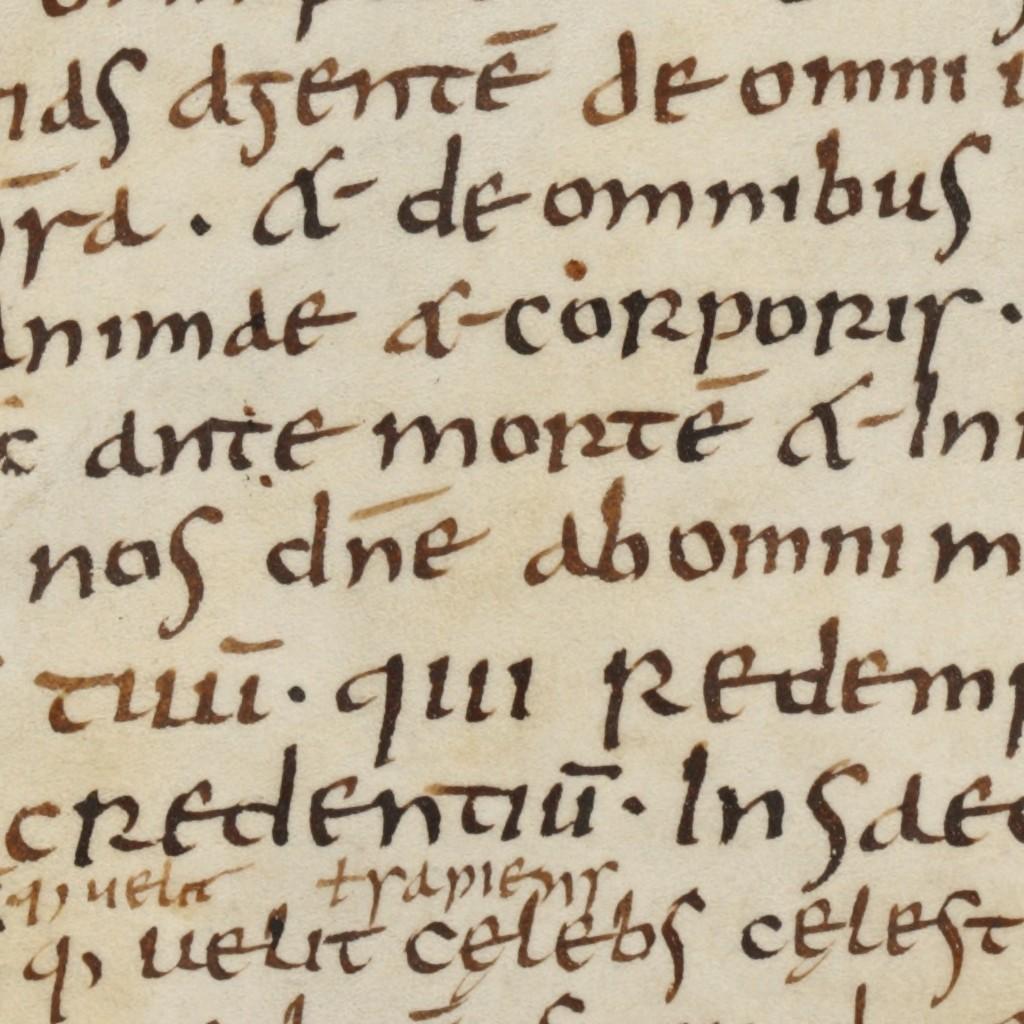 agentē de omni
r̄a . & de omnibus
animae & corporis .
ante mortē & In
nos dn̄e ab omni m
tiuū . qui redemp
credentiū . In saec
q, uelut t sapiens
q, uelut cęlebs cęlest